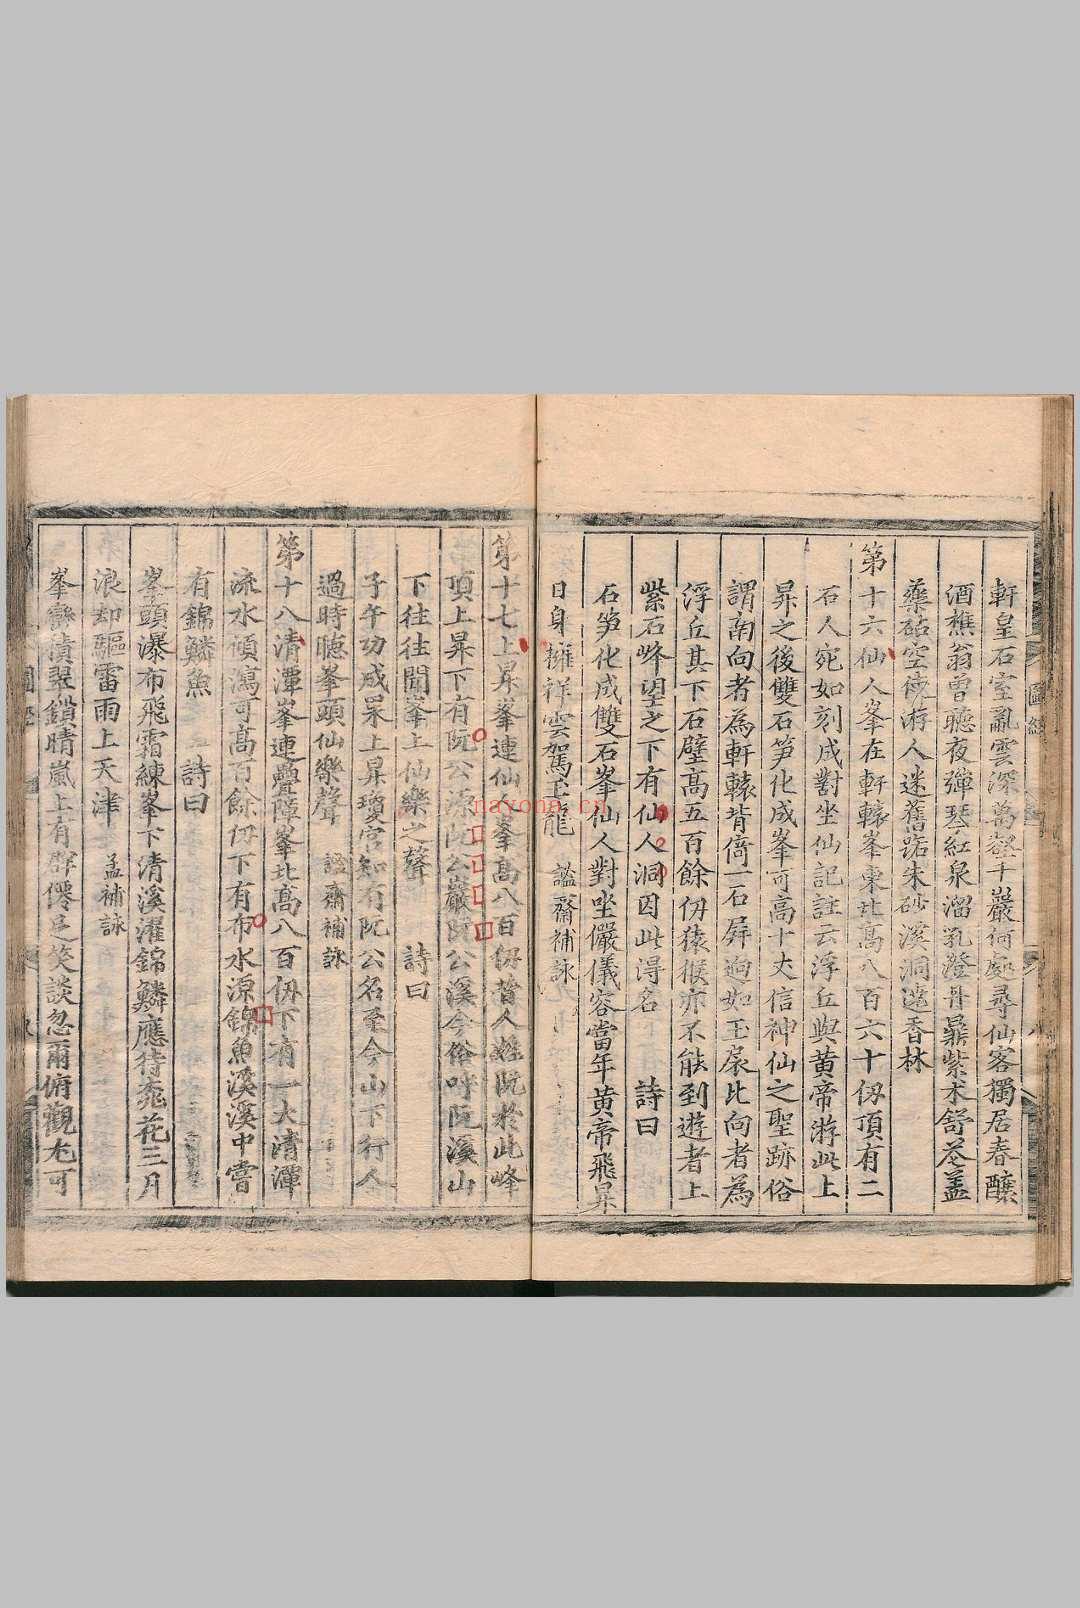 軒皇石室亂雲深萬壑千巖何處尋仙客獨居春釀
酒樵翁曾聽夜彈琴紅泉溜乳澄丹鼎紫术舒苓蓋
藥砧空使游人迷舊路朱砂溪洞遶香林
第十六仙人峯在軒轅峯東北高八百六十仞頂有二
石人宛如刻成對坐仙記註云浮丘與黄帝游此上
昇之後雙石笋化成峯可高十丈信神仙之聖跡俗
謂南向者為軒轅背倚一石屏逈如玉扆北向者為
浮丘其下石壁高五百餘仞猿猴亦不能到遊者上
紫石峰望之下有仙人洞因此淂名 詩曰
石笋化成雙石峯仙人對坐儼儀容當年黄帝飛昇
日身擁祥雲駕玉龍 謐齋補詠
第十七上昇峯連仙人峯高八百仞昔人姓阮於此峰
頂上昇下有阮公源阮公巖阮公溪今俗呼阮溪山
下往往聞峯上仙樂之聲 詩曰
子午功成果上昇瓊宮知有阮公名至今山下行人
過時聴峯頭仙樂聲 謐齋補詠
第十八清潭峯連疊障峯北高八百仞下有一大清潭
流水傾瀉可高百餘仞下有布水源錦魚溪溪中嘗
有錦鱗魚 詩曰
峯頭瀑布飛霜練峯下清溪濯錦鱗應待桃花三月
浪却驅雷雨上天津 孟補詠
峯巒積翠鎖晴嵐上有群僊足笑談忽爾俯觀尢可
圖經
nayona.cn